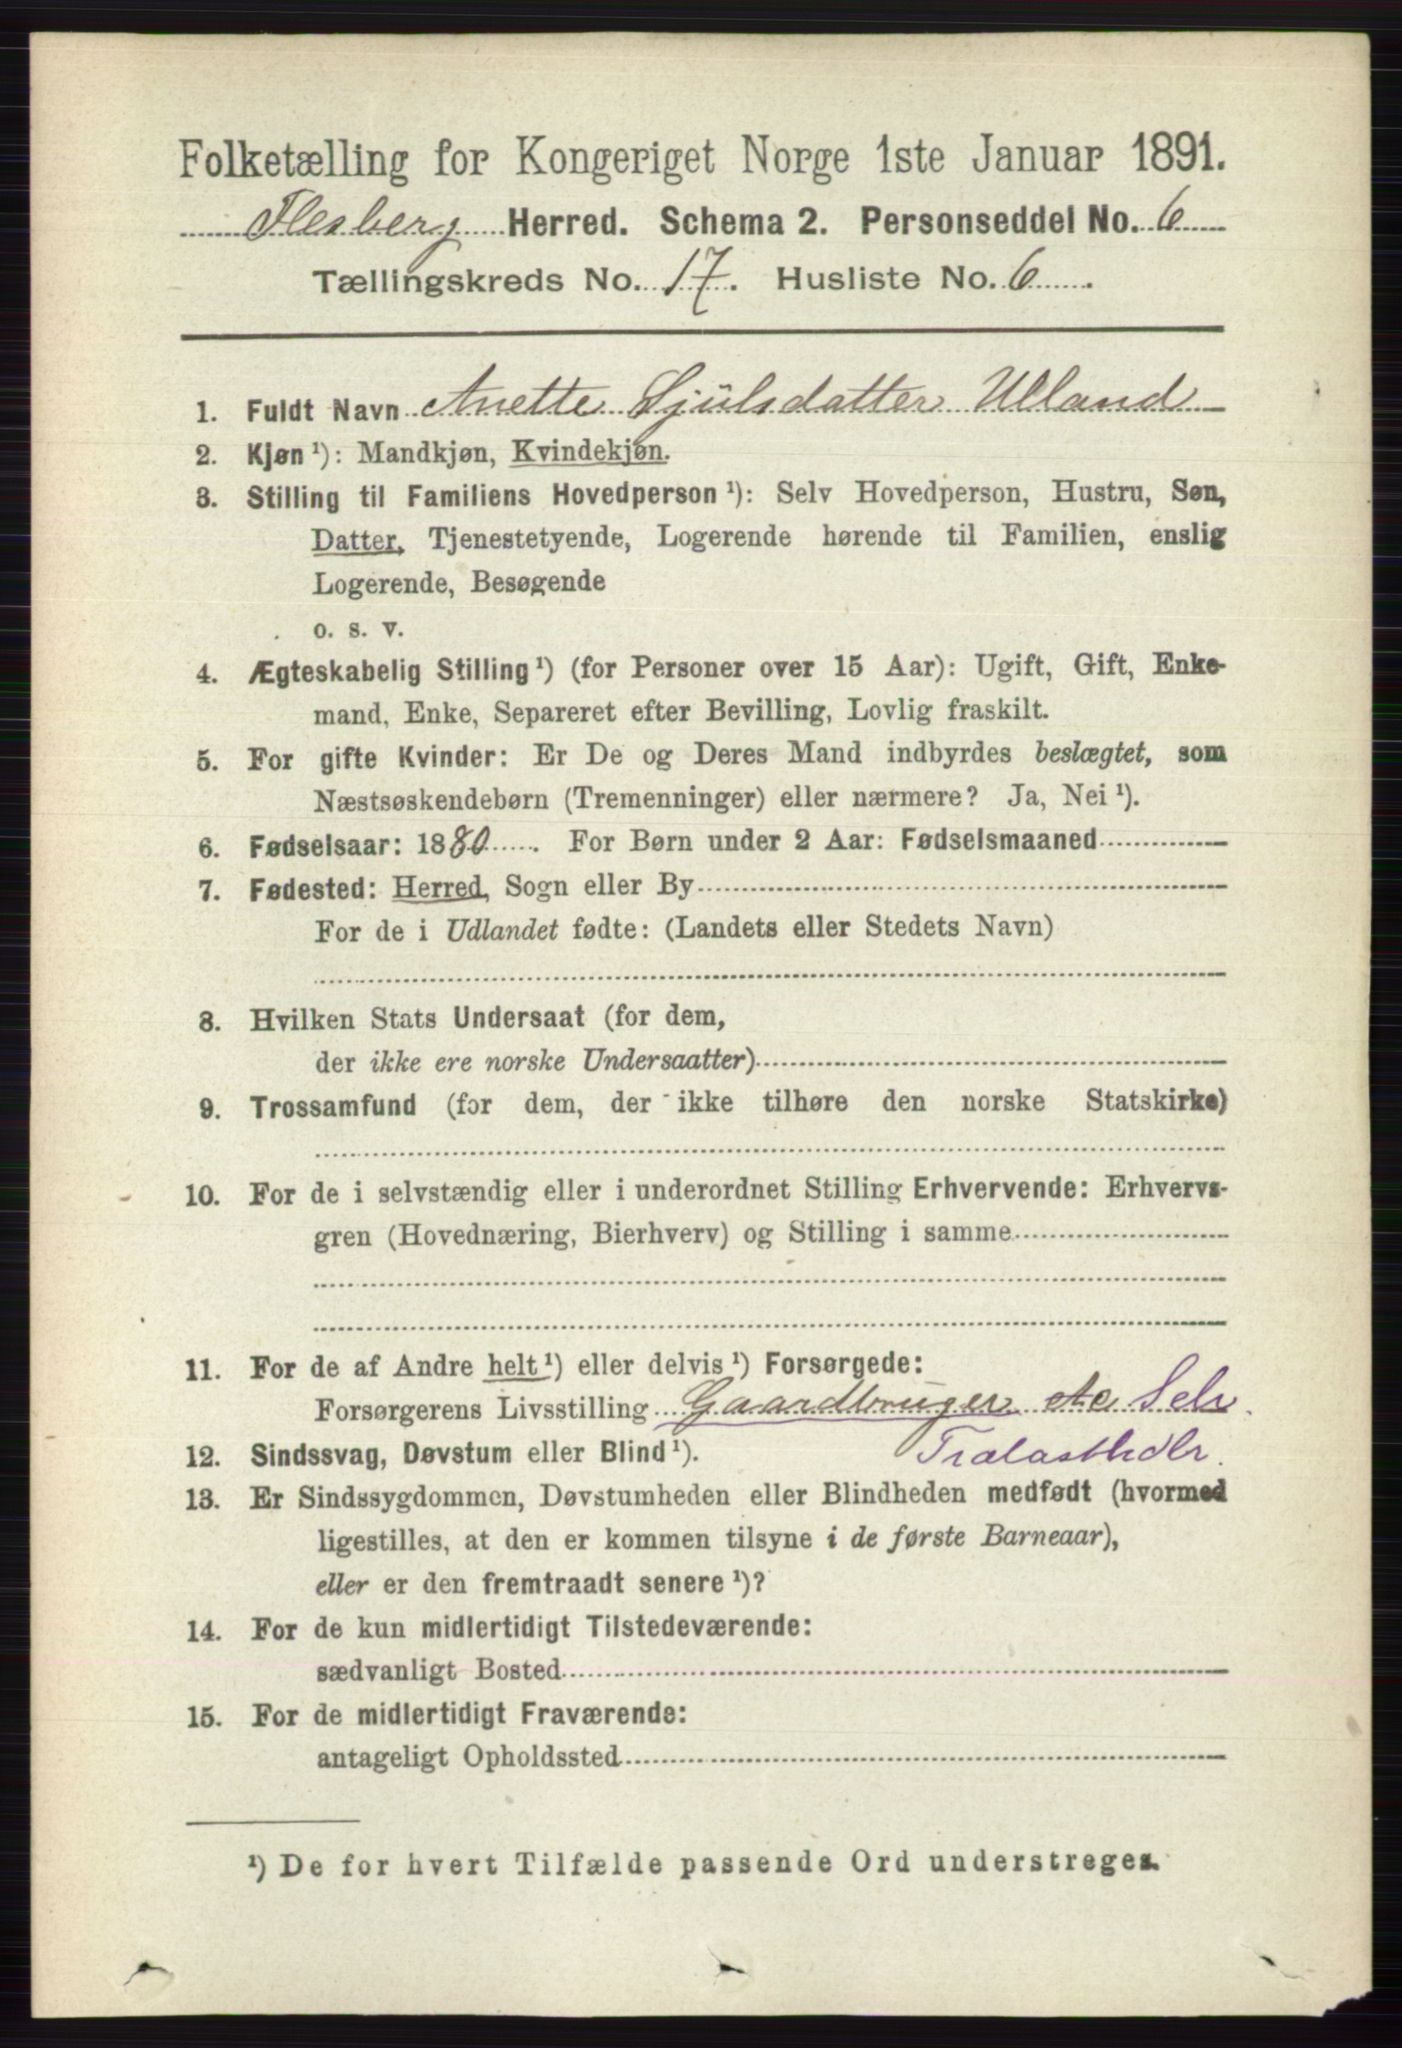 Folketælling for Kongeriget Norge 1ste Januar 1891.
Flesberg Herred. Schema 2. Personseddel No. 6
Tællingskreds No. 17. Husliste No. 6.
1. Fuldt Navn Anette Sjulsdatter Ulland
2. Kjøn ¹): Mandkjøn, Kvindekjøn.
3. Stilling til Familiens Hovedperson ¹): Selv Hovedperson, Hustru, Søn,
Datter, Tjenestetyende, Logerende hørende til Familien, enslig
Logerende, Besøgende
o. s. v.
4. Ægteskabelig Stilling ¹) (for Personer over 15 Aar): Ugift, Gift, Enke-
mand, Enke, Separeret efter Bevilling, Lovlig fraskilt.
5. For gifte Kvinder: Er De og Deres Mand indbyrdes beslægtet, som
Næstsøskendebørn (Tremenninger) eller nærmere? Ja, Nei ¹).
6. Fødselsaar: 1880. For Børn under 2 Aar: Fødselsmaaned
7. Fødested: Herred, Sogn eller By
For de i Udlandet fødte: (Landets eller Stedets Navn)
8. Hvilken Stats Undersaat (for dem,
der ikke ere norske Undersaatter)
9. Trossamfund (for dem, der ikke tilhøre den norske Statskirke)
10. For de i selvstændig eller i underordnet Stilling Erhvervende: Erhvervs-
gren (Hovednæring, Bierhverv) og Stilling i samme
11. For de af Andre helt ¹) eller delvis ¹) Forsørgede:
Forsørgerens Livsstilling Gaardbruger Selv
12. Sindssvag, Døvstum eller Blind ¹). Trælasthdlr.
13. Er Sindssygdommen, Døvstumheden eller Blindheden medfødt (hvormed
ligestilles, at den er kommen tilsyne i de første Barneaar),
eller er den fremtraadt senere ¹)?
14. For de kun midlertidigt Tilstedeværende:
sædvanligt Bosted
15. For de midlertidigt Fraværende:
antageligt Opholdssted
¹) De for hvert Tilfælde passende Ord understreges.